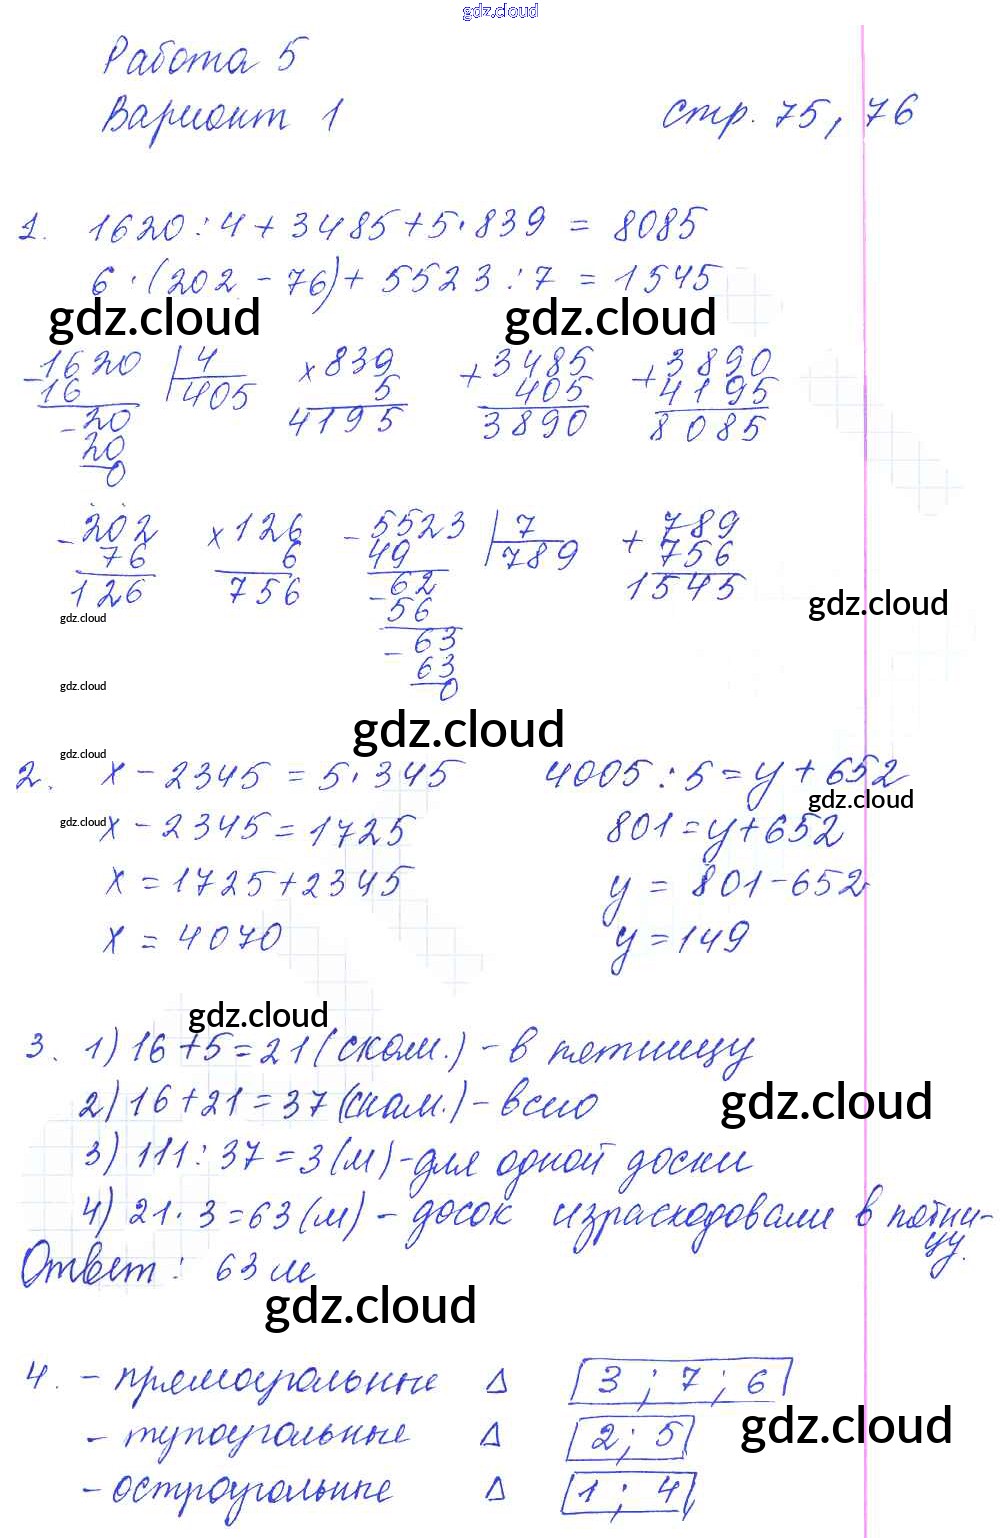 gdz.cloud
Работа 5
Вариант 1 стр. 75, 76
1. 1620 : 4 + 3485 + 5 · 839 = 8085
6 · (202 - 76) + 5523 : 7 = 1545
gdz.cloud gdz.cloud
- 1620 | 4 × 839 + 3485 + 3890
16 405 5 405 4195
- 20 4195 3890 8085
20
0
- 202 × 126 - 5523 | 7 + 789
76 6 49 789 756
126 756 - 62 1545
gdz.cloud 56 gdz.cloud
- 63
63
gdz.cloud 0
gdz.cloud
gdz.cloud
2. x - 2345 = 5 · 345 4005 : 5 = y + 652
gdz.cloud
gdz.cloud x - 2345 = 1725 801 = y + 652
x = 1725 + 2345 y = 801 - 652
x = 4070 y = 149
gdz.cloud
3. 1) 16 + 5 = 21 (скам.) - в пятницу
2) 16 + 21 = 37 (скам.) - всего
gdz.cloud
3) 111 : 37 = 3 (м) - для одной доски
4) 21 · 3 = 63 (м) - досок израсходовали в пятни-
цу.
Ответ : 63 м
gdz.cloud
4. - прямоугольные Δ 3 ; 7 ; 6
- тупоугольные Δ 2 ; 5
gdz.cloud
- остроугольные Δ 1 ; 4